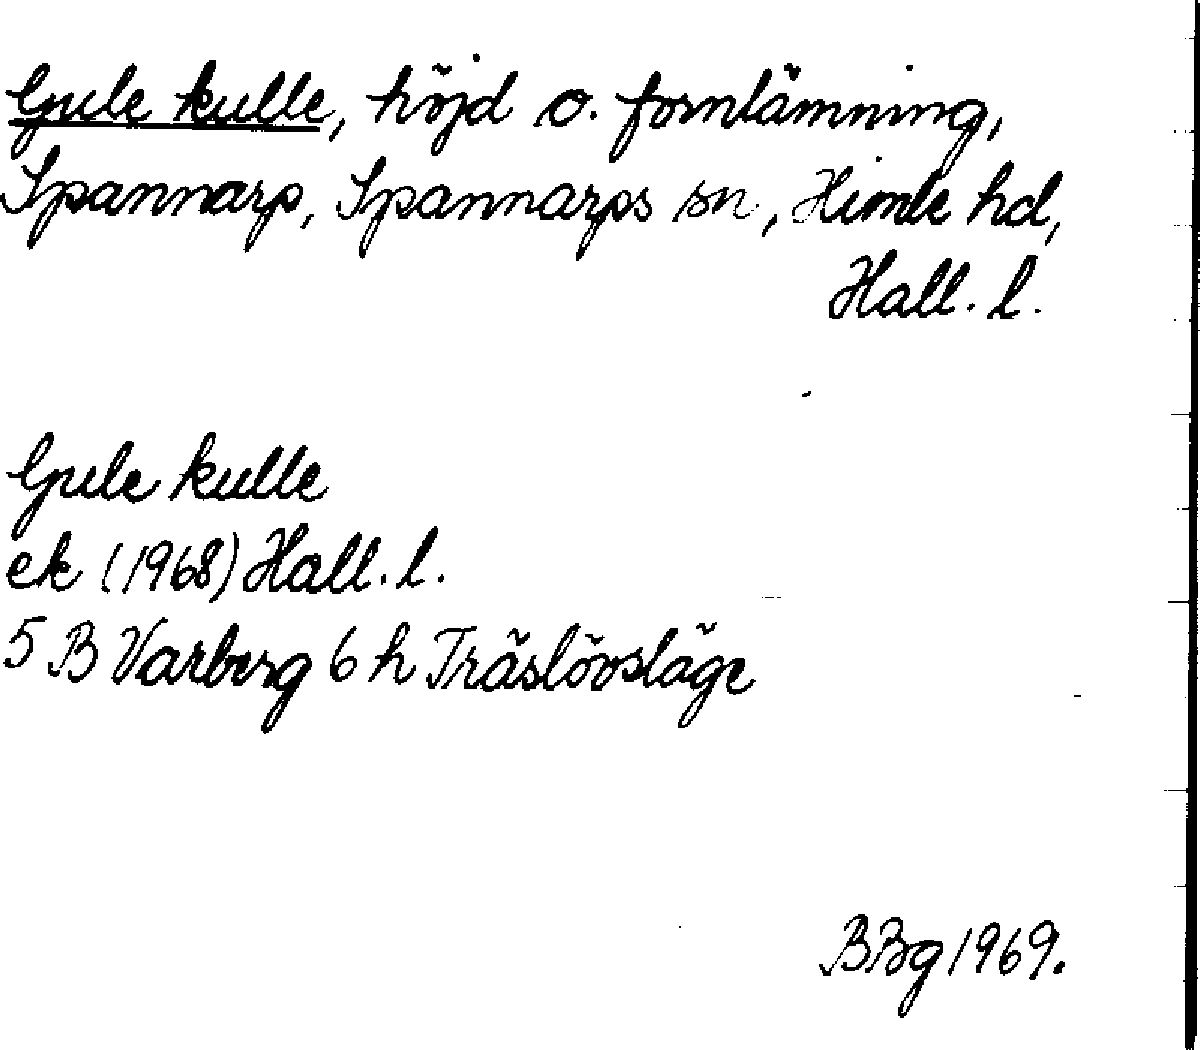 Gule kulle, höjd o. fornlämning,
Spannarp, Spannarps sn, Himle hd,
Hall. l.
Gule kulle
ek (1968) Hall. l.
5 B Varberg 6 h Träslövsläge
BBg 1969.